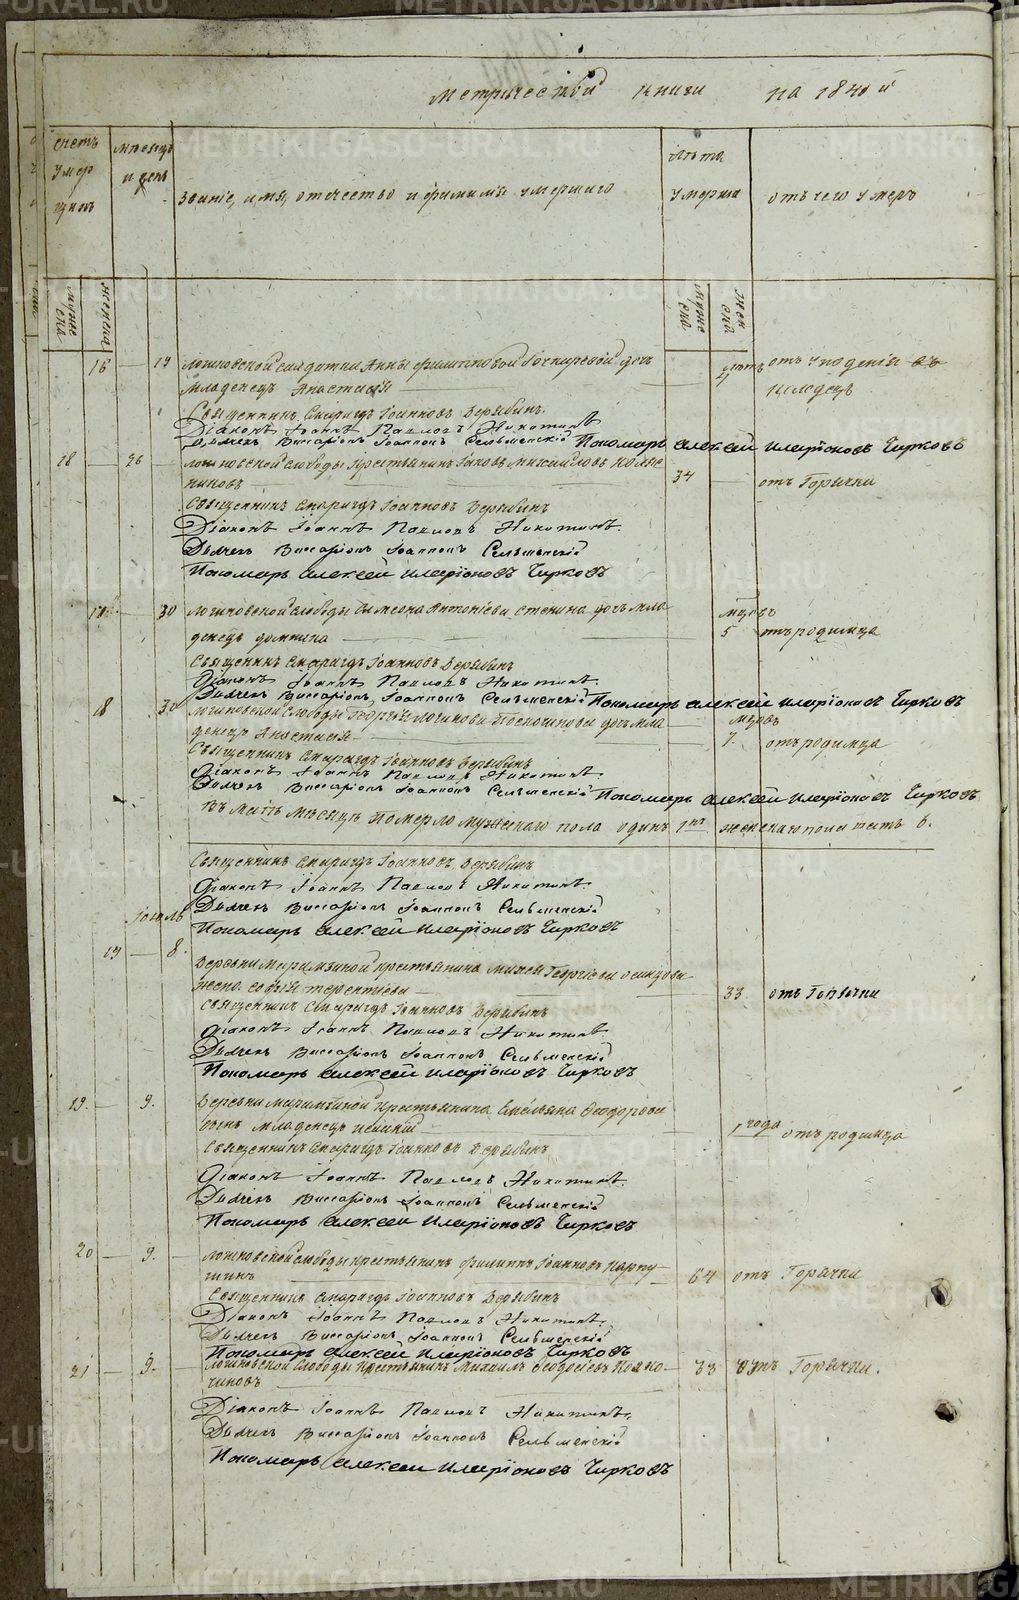 Метрической книги на 1840й
счетъ умершихъ
мѣсяцъ и день
Званіе, имя, отчество и фамилія умершаго
лѣта умерша
отъ чего умеръ
мужеска
женска
мужеска
женска
16 — 19 Логиновской солдатки Анны Филипповой дочь
младенецъ Анастасія
отъ упаденія въ
колодецъ
Священникъ Смарагдъ Іоанновъ Верябинъ
Діаконъ Іоаннъ Павловъ Никитинъ
Дьячекъ Виссаріонъ Іоанновъ Сельменскій Пономарь Алексей Иларіоновъ Чирковъ
18 — 26 Логиновской слободы крестьянинъ Іаковъ Михайловъ
34 отъ Горячки
Священникъ Смарагдъ Іоанновъ Верябинъ
Діаконъ Іоаннъ Павловъ Никитинъ.
Дьячекъ Виссаріонъ Іоанновъ Сельменскій
Пономарь Алексей Иларіоновъ Чирковъ
17 30 Логиновской слободы Симеона Антоніева Стенина дочь мла
денецъ Домника
мцовъ
5 отъ родимца
Священникъ Смарагдъ Іоанновъ Верябинъ
Діаконъ Іоаннъ Павловъ Никитинъ.
Дьячекъ Виссаріонъ Іоанновъ Сельменскій Пономарь Алексей Иларіоновъ Чирковъ
18 30 Логиновской слободы Георгія Логинова дочь мла
денецъ Анастасія
мцовъ
7. отъ родимца
Священникъ Смарагдъ Іоанновъ Верябинъ
Діаконъ Іоаннъ Павловъ Никитинъ
Дьячекъ Виссаріонъ Іоанновъ Сельменскій Пономарь Алексей Иларіоновъ Чирковъ
Въ Маіѣ мѣсяцѣ померло мужескаго пола одинъ 1нъ женскаго пола шесть 6.
Священникъ Смарагдъ Іоанновъ Верябинъ
Діаконъ Іоаннъ Павловъ Никитинъ
Дьячекъ Виссаріонъ Іоанновъ Сельменскій
Пономарь Алексей Иларіоновъ Чирковъ
19 — 8. Деревни крестьянина Георгіева
жена Софія Терентіева
33 отъ Горячки
Священникъ Смарагдъ Іоанновъ Верябинъ
Діаконъ Іоаннъ Павловъ Никитинъ
Дьячекъ Виссаріонъ Іоанновъ Сельменскій
Пономарь Алексей Иларіоновъ Чирковъ
19. — 9. Деревни крестьянина Емельяна Ѳеодорова
сынъ младенецъ
1 года отъ родимца
Священникъ Смарагдъ Іоанновъ Верябинъ
Діаконъ Іоаннъ Павловъ Никитинъ.
Дьячекъ Виссаріонъ Іоанновъ Сельменскій
Пономарь Алексей Иларіоновъ Чирковъ
20 — 9. Логиновской слободы крестьянинъ Филиппъ Іоанновъ Карпу
шинъ
64 отъ Горячки
Священникъ Смарагдъ Іоанновъ Верябинъ
Діаконъ Іоаннъ Павловъ Никитинъ.
Дьячекъ Виссаріонъ Іоанновъ Сельменскій
Пономарь Алексей Иларіоновъ Чирковъ
21 — 9. Логиновской слободы крестьянинъ Михаилъ Ѳеодосіевъ
33 отъ Горячки.
Діаконъ Іоаннъ Павловъ Никитинъ.
Дьячекъ Виссаріонъ Іоанновъ Сельменскій
Пономарь Алексей Иларіоновъ Чирковъ
METRIKI.GASO-URAL.RU